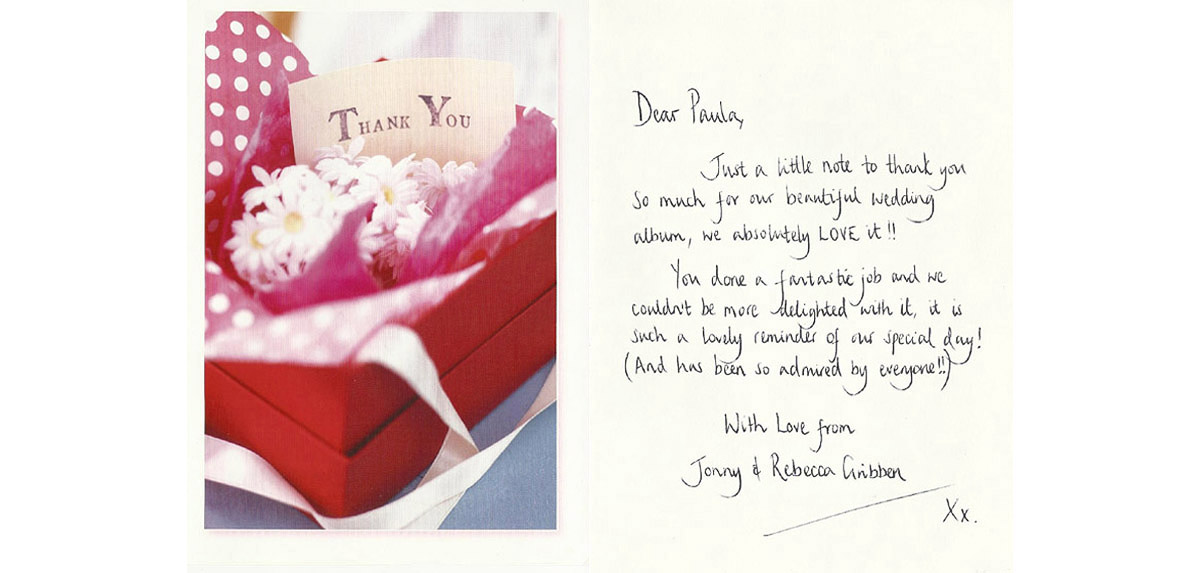 THANK YOU
Dear Paula,
Just a little note to thank you
so much for our beautiful wedding
album, we absolutely LOVE it!!
You done a fantastic job and we
couldn't be more delighted with it, it is
such a lovely reminder of our special day!
(And has been so admired by everyone!!)
With Love from
Jonny & Rebecca Gribben
Xx.